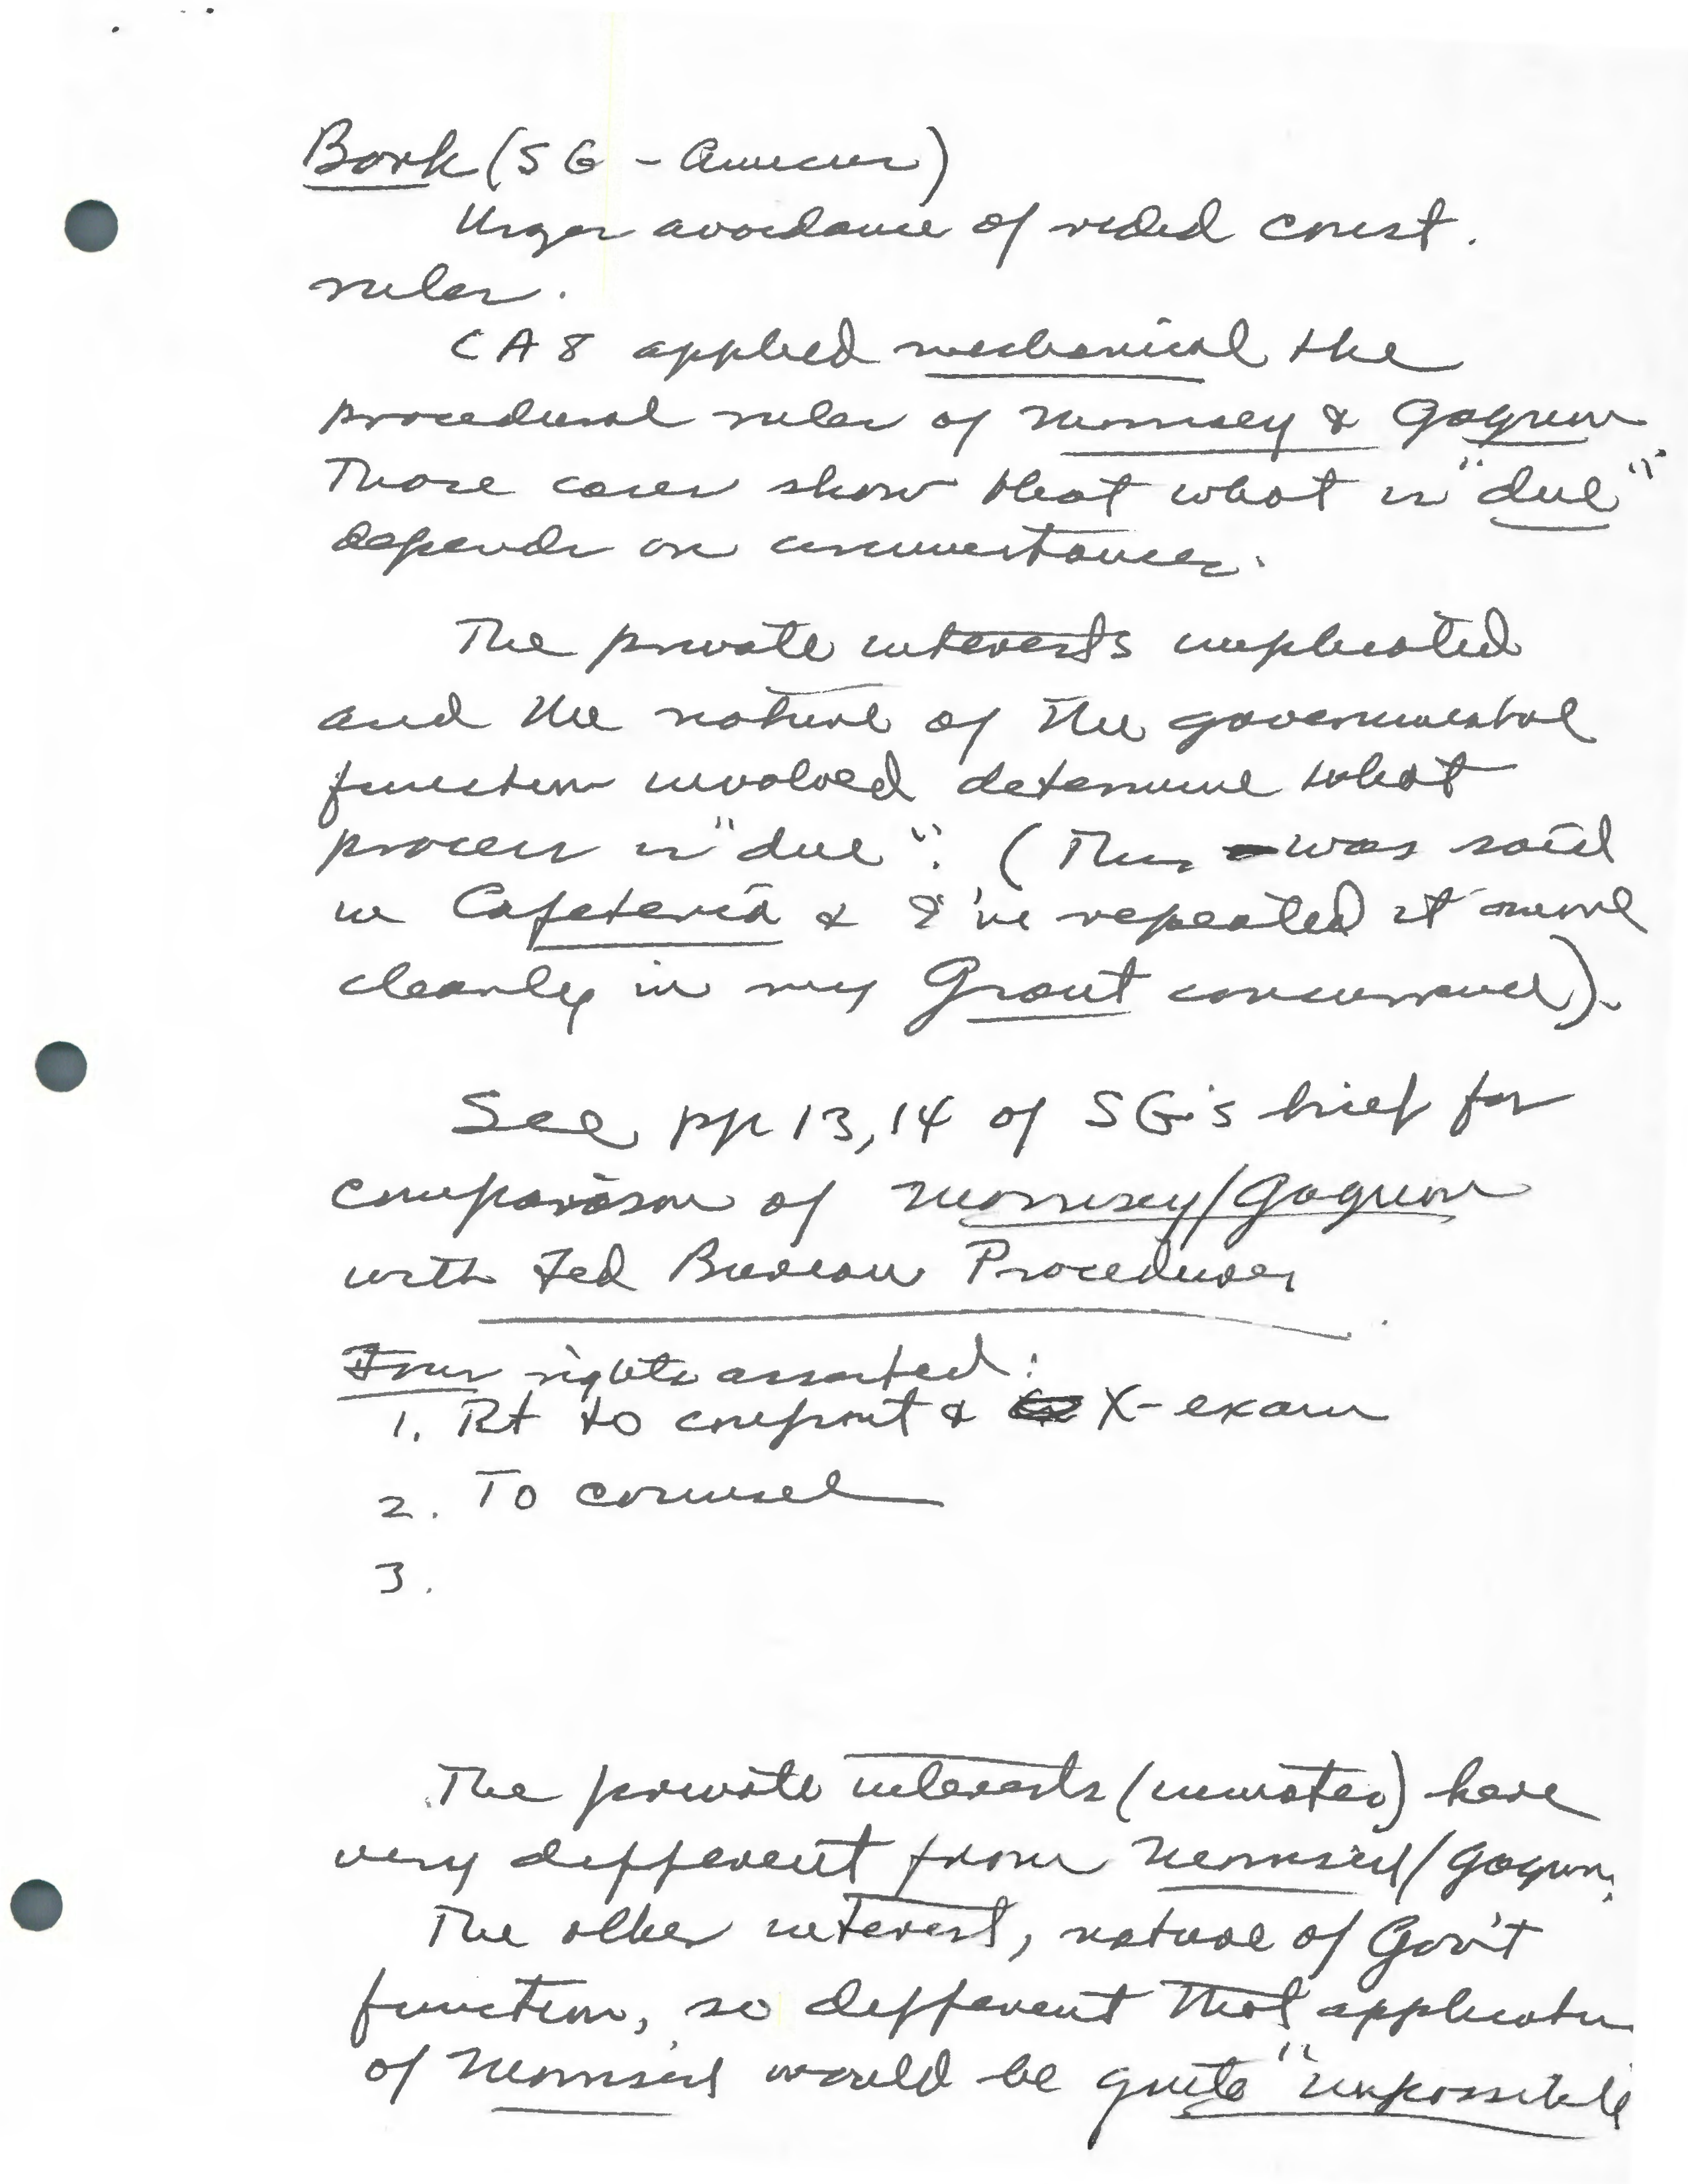 Bork (SG - Amicus)
Urges avoidance of rigid const.
rules.
CA 8 applied mechanical the
procedural rules of Morrissey & Gagnon
Those cases show that what is "due"
depends on circumstances.
The private interests implicated
and the nature of the governmental
function involved determine what
process is "due". (This was said
in Cafeteria & I've repeated it more
clearly in my Grout concurrence).
See pp 13,14 of SG's brief for
comparison of Morrissey/Gagnon
with Fed Bureau Procedures
Four rights asserted:
1. Rt to confront & X-exam
2. To counsel
3.
The private interests (inmates) here
very different from Morrissey/Gagnon.
The other interest, nature of Gov't
function, so different that applicatn
of Morrissey would be quite "impossible